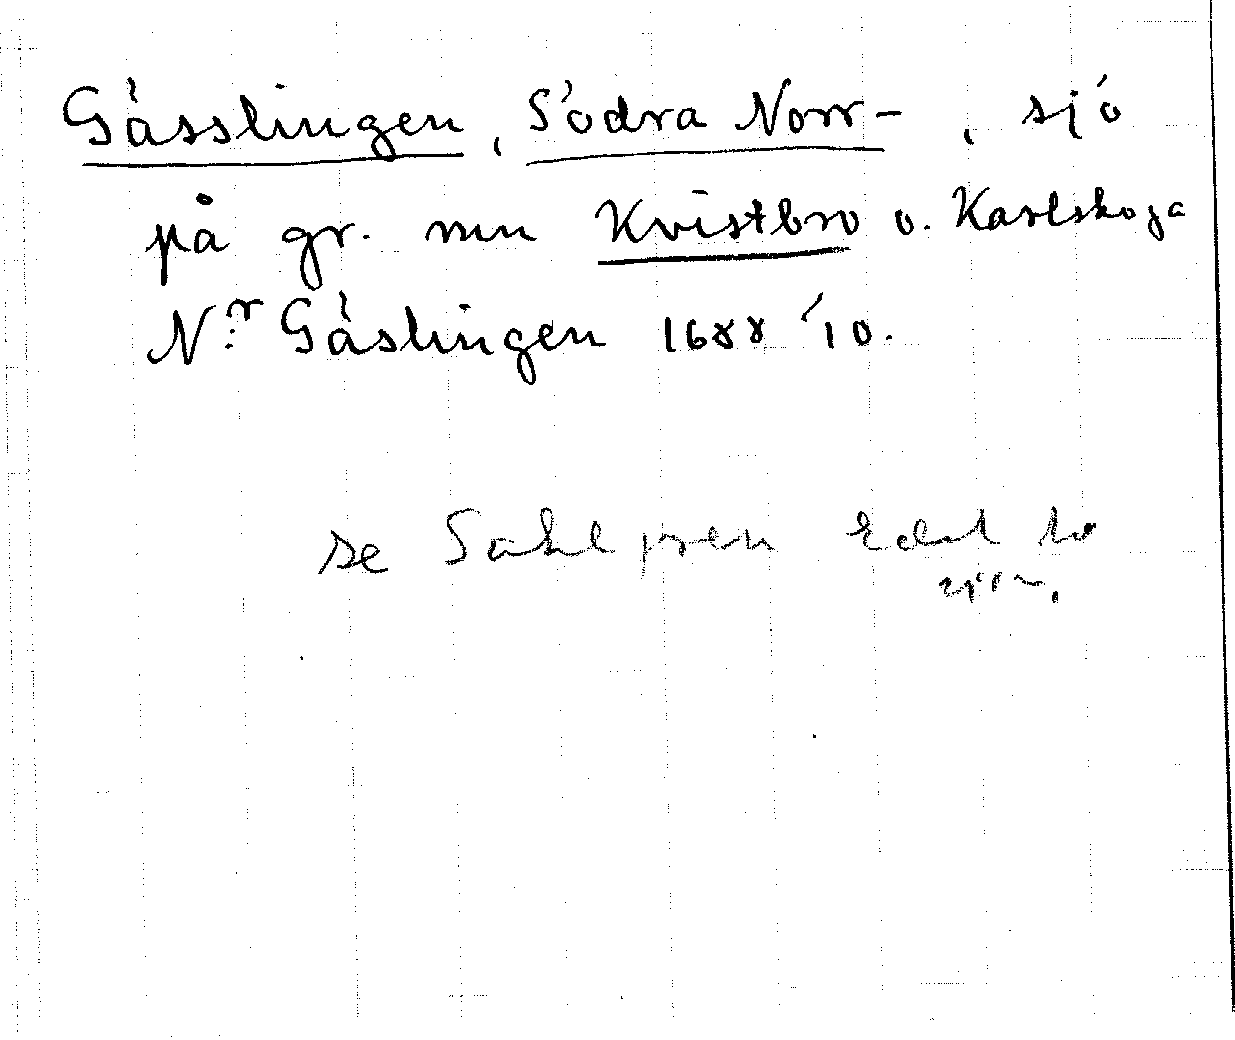 Gässlingen, Södra Norr-, sjö
på gr. mn Kvistbro o. Karlskoga
N:r Gäslingen 1688 '10.
se Sahlgren